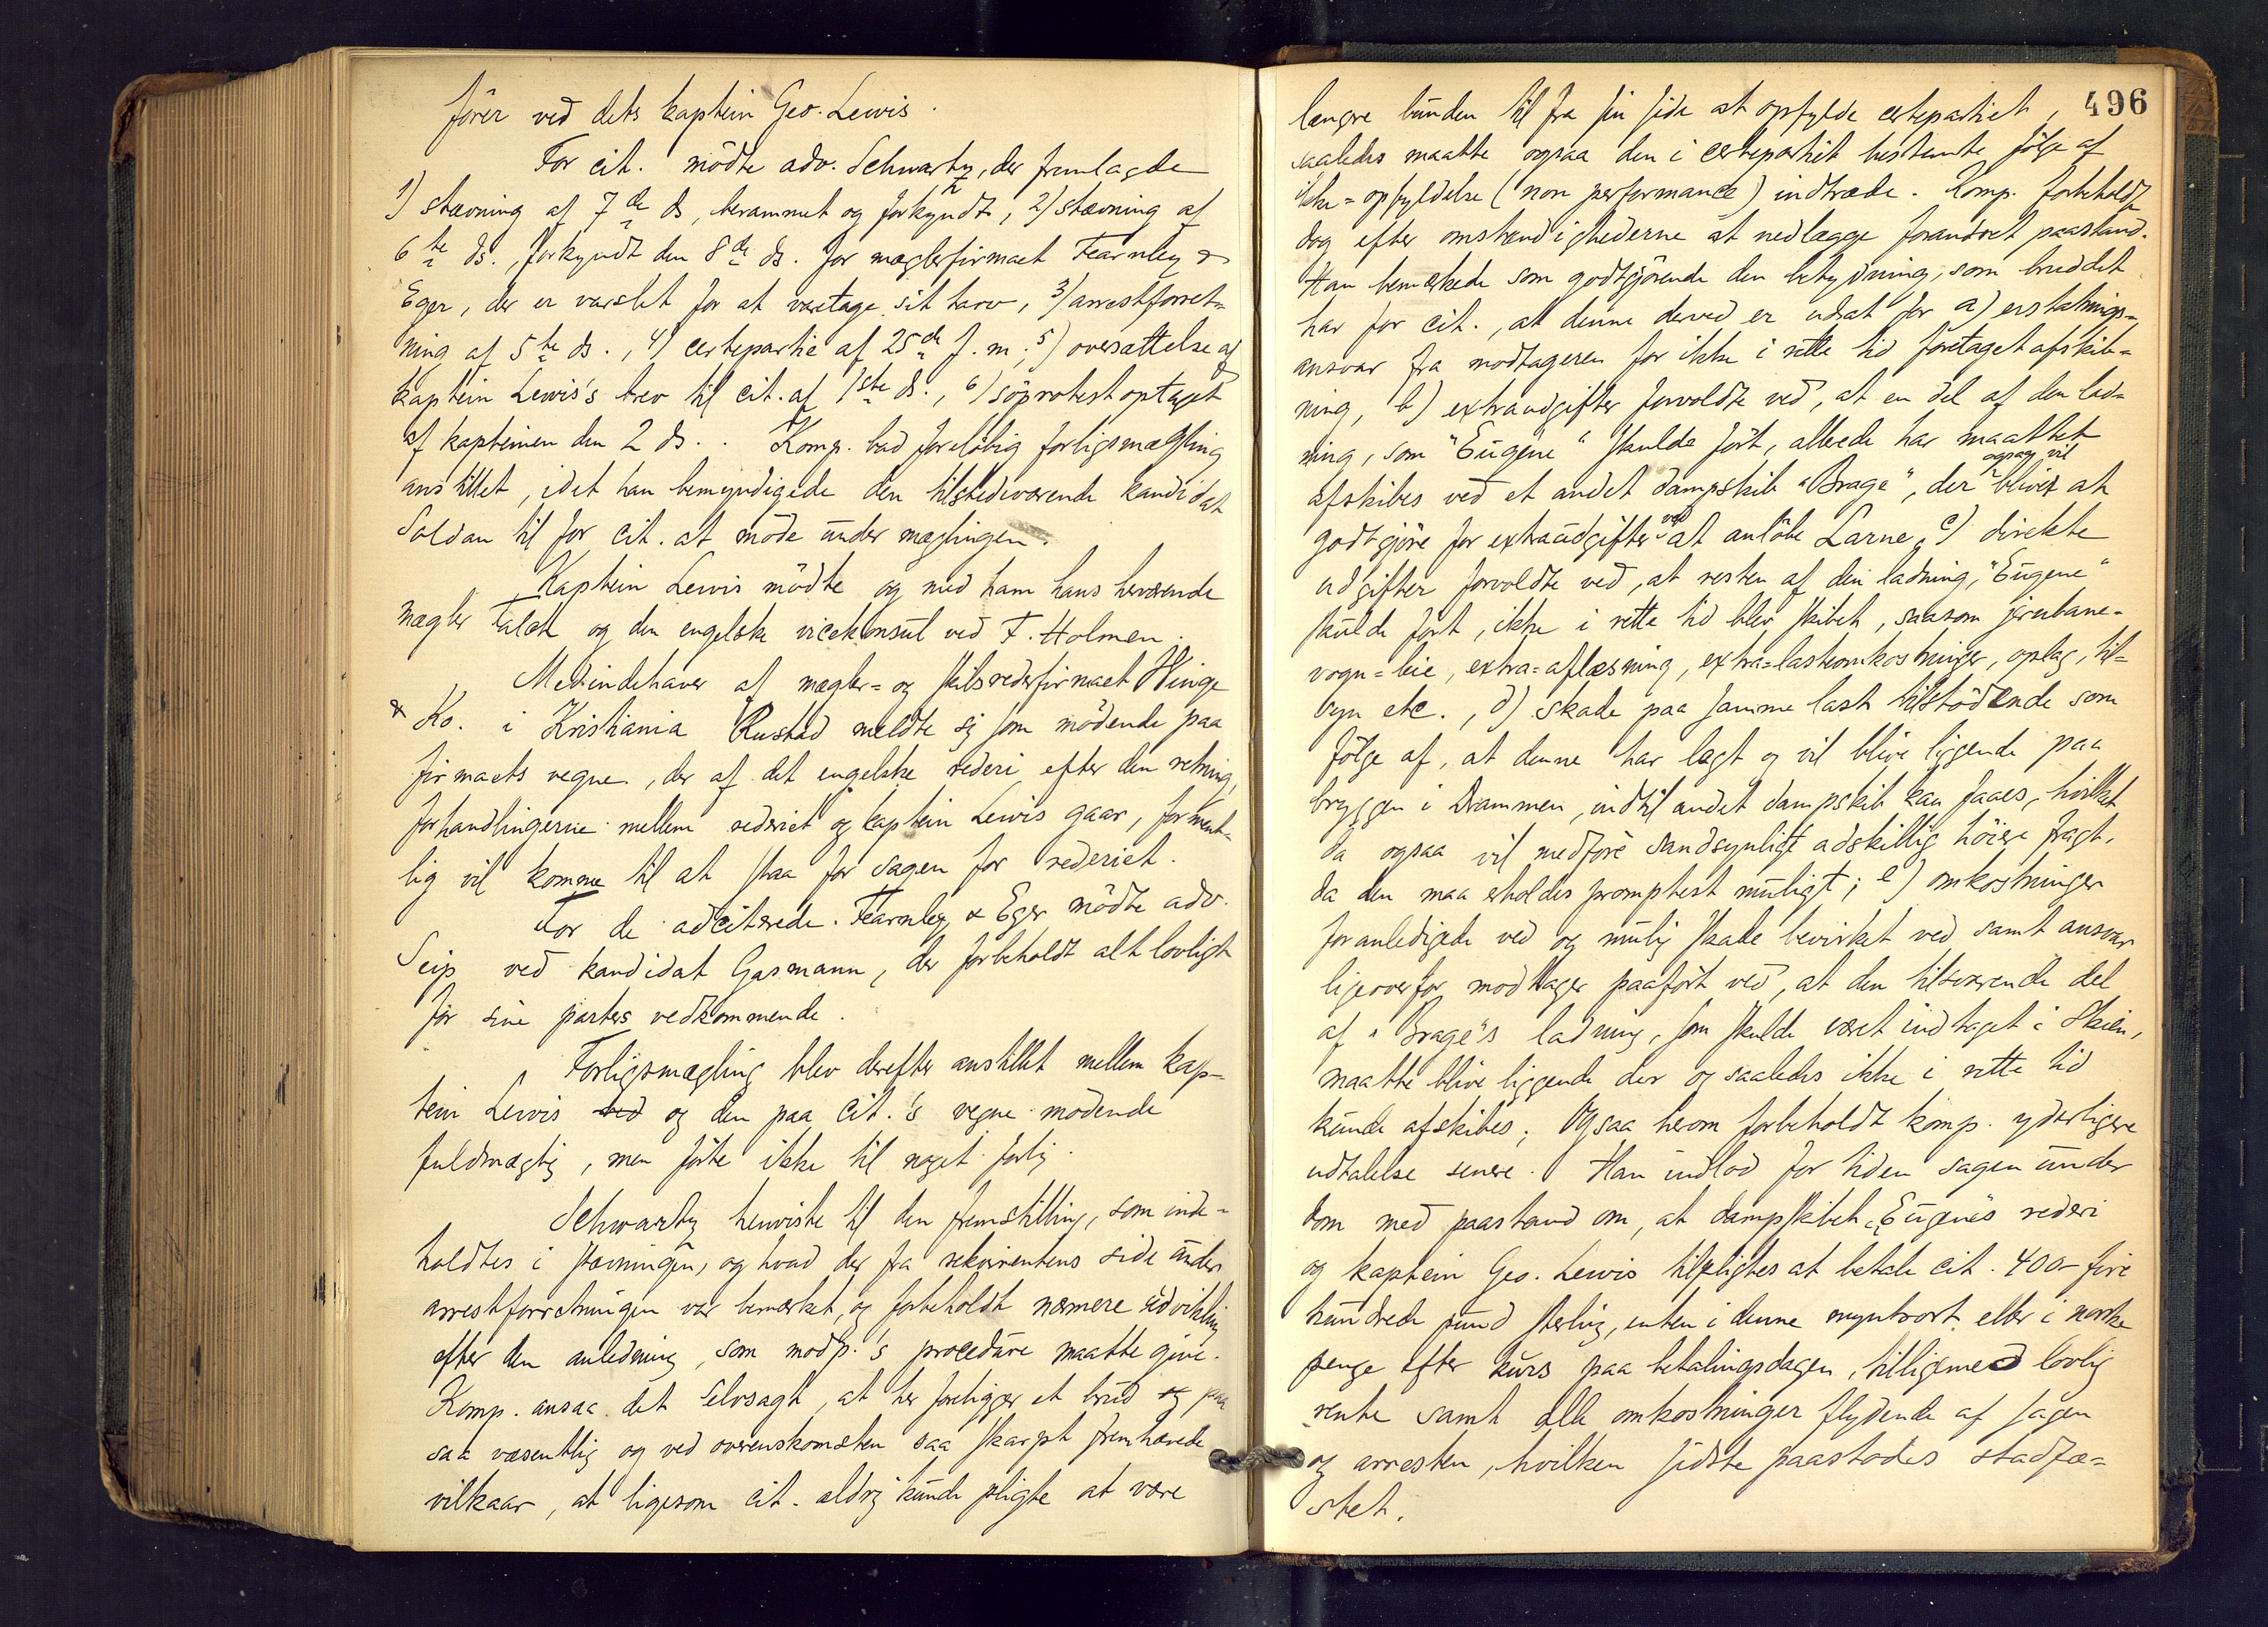 fører ved dets kaptein Geo. Lewis.
For cit. mødte adv. Schwartz, der fremlagde
1) stævning af 7de ds, berammet og forkyndt, 2) stævning af
6te ds., forkyndt den 8de ds. for mæglerfirmaet Fearnley &
Eger, der er varslet for at varetage sit tarv, 3) arrestforret=
ning af 5te ds., 4) certepartie af 25de f. m., 5) oversættelse af
kaptein Lewis's brev til cit. af 1ste ds., 6) søprotest optaget
af kapteinen den 2 ds.. Komp. bad foreløbig forligsmægling
anstillet, idet han bemyndigede den tilstedeværende kandidat
Soldan til for cit. at møde under mæglingen.
Kaptein Lewis mødte og med ham hans herværende
mægler Falck og den engelske vicekonsul ved F. Holmen.
Medindehaver af mægler= og skibsrederfirmaet Hinge
& Ko. i Kristiania Rustad meldte sig som mødende paa
firmaets vegne, der af det engelske rederi efter den retning,
forhandlingerne mellem rederiet og kaptein Lewis gaar, forment-
lig vil komme til at staa for sagen for rederiet.
For de adciterede Fearnley & Eger mødte adv.
Seip ved kandidat Gasmann, der forbeholdt alt lovligt
for sine parters vedkommende.
Forligsmægling blev derefter anstillet mellem kap-
tein Lewis ved og den paa cit.'s vegne mødende
fuldmægtig, men førte ikke til noget forlig.
Schwartz henviste til den fremstilling, som inde=
holdtes i stævningen, og hvad der fra rekvirentens side under
arrestforretningen var bemærket, og forbeholdt nærmere udvikling
efter den anledning, som modp.'s procedure maatte give.
Komp. ansaa det selvsagt, at her foreligger et brud og paa
saa væsentlig og ved overenskomsten saa skarpt fremhævede
vilkaar, at ligesom cit. aldrig kunde pligte at være
496
længre bunden til fra sin side at opfylde certepartiet,
saaledes maatte ogsaa den i certepartiet bestemte følge af
ikke=opfyldelse (non performance) indtræde. Komp. forbeholdt
dog efter omstændighederne at nedlægge forandret paastand.
Han bemærkede som godtgjørende den betydning, som bruddet
har for cit., at denne derved er udsat for a) erstatnings=
ansvar fra modtageren for ikke i rette tid foretaget afskib=
ning, b) extraudgifter forvoldte ved, at en del af den lad=
ning, som "Eugene" skulde ført, allerede har maattet
afskibes ved et andet dampskib "Brage", der ogsaa vil bliver at
godtgjøre for extraudgifter ved at anløbe Larne, c) direkte
udgifter forvoldte ved, at resten af den ladning, "Eugene"
skulde ført, ikke i rette tid blev skibet, saasom jernbane-
vogn=leie, extra=aflæsning, extra=lasteomkostninger, oplag, til=
syn etc., d) skade paa samme last tilstødende som
følge af, at denne har lagt og vil blive liggende paa
bryggen i Drammen, indtil andet dampskib kan faaes, hvilket
da ogsaa vil medføre sandsynligt adskillig høiere fragt,
da den maa erholdes promptest muligt; e) omkostninger
foranledigede ved og mulig skade bevirket ved samt ansvar
ligeoverfor modtager paaført ved, at den tilsvarende del
af "Brage"s ladning, som skulde været indtaget i Skien,
maatte blive liggende der og saaledes ikke i rette tid
kunde afskibes; Ogsaa herom forbeholdt komp. yderligere
udtalelse senere. Han indlod for tiden sagen under
dom med paastand om, at dampskibet "Eugene"s rederi
og kaptein Geo. Lewis tilpligtes at betale cit. 400- fire
hundrede pund sterling, enten i denne myntsort eller i norske
penge efter kurs paa betalingsdagen, tilligemed lovlig
rente samt alle omkostninger flydende af sagen
og arresten, hvilken sidste paastodes stadfæ=
stet.